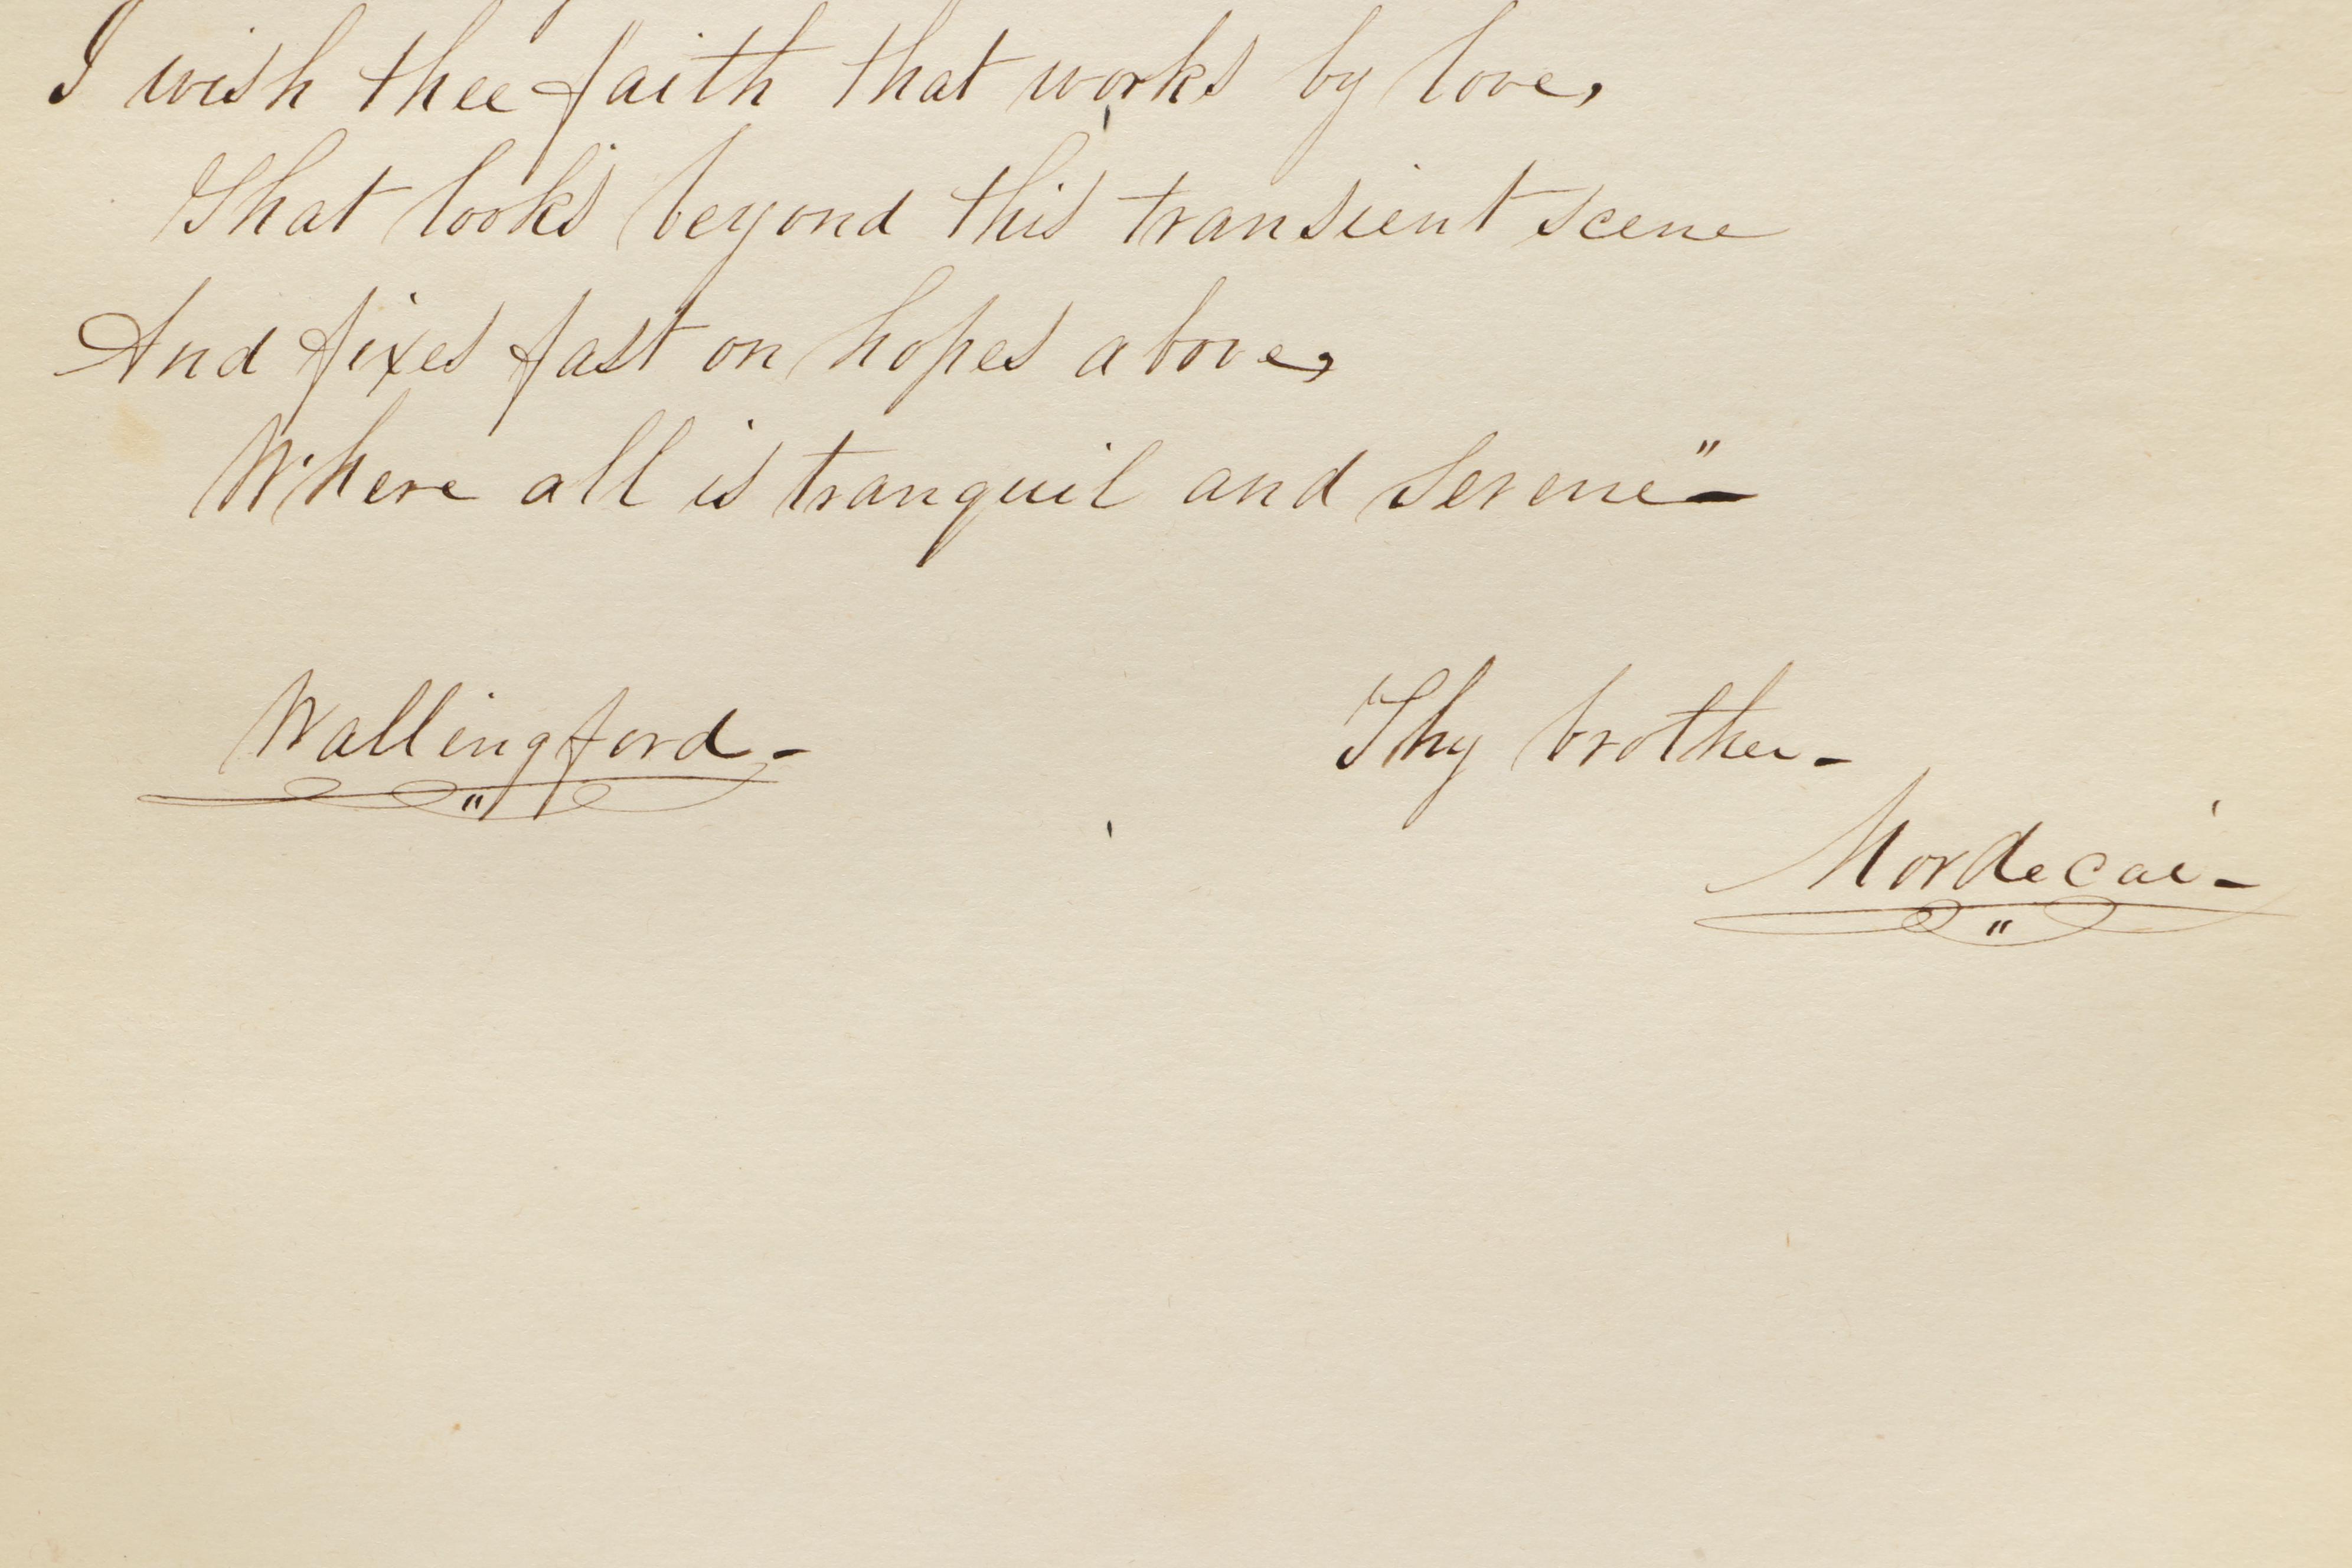 I wish thee faith that works by love,
That looks beyond this transient scene
And fixes fast on hopes above,
Where all is tranquil and serene"-
Wallingford-
Thy brother-
Mordecai-